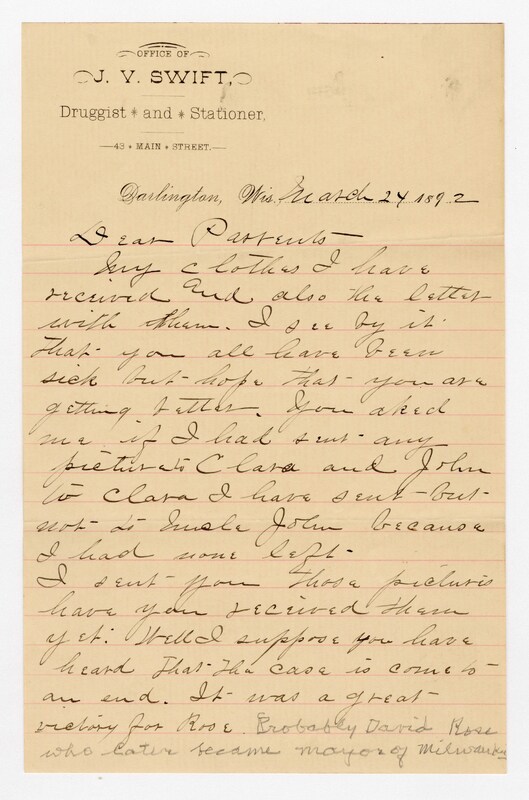 OFFICE OF
J. V. SWIFT,
Druggist * and * Stationer,
43 * MAIN * STREET.
Darlington, Wis. March 24 1892
Dear Parrents
My clothes I have
received and also the letter
with them. I see by it
that you all have been
sick but hope that you are
getting better. You aked
me if I had sent any
picture to Clara and John
to Clara I have sent but
not to Uncle John because
I had none left
I sent you those picturis
have you received them
yet. Well I suppose you have
heard that the case is come to
an end. It was a great
victory for Rose. Probably David Rose
who later became mayor of Milwaukee